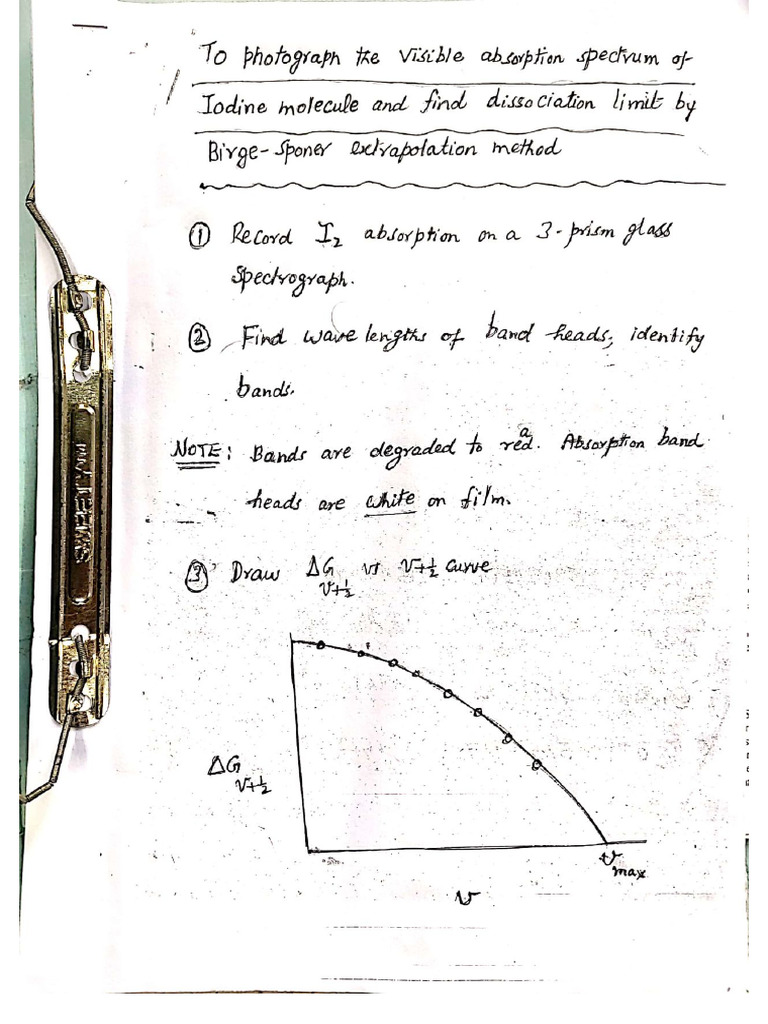 To photograph the visible absorption spectrum of
Iodine molecule and find dissociation limit by
Birge-Sponer extrapolation method
① Record I₂ absorption on a 3-prism glass
spectrograph.
② Find wave lengths of band heads, identify
bands.
NOTE: Bands are degraded to red. Absorption band
heads are white on film.
③ Draw ΔG_{v+½} vs v+½ curve
ΔG_{v+½}
v_{max}
v